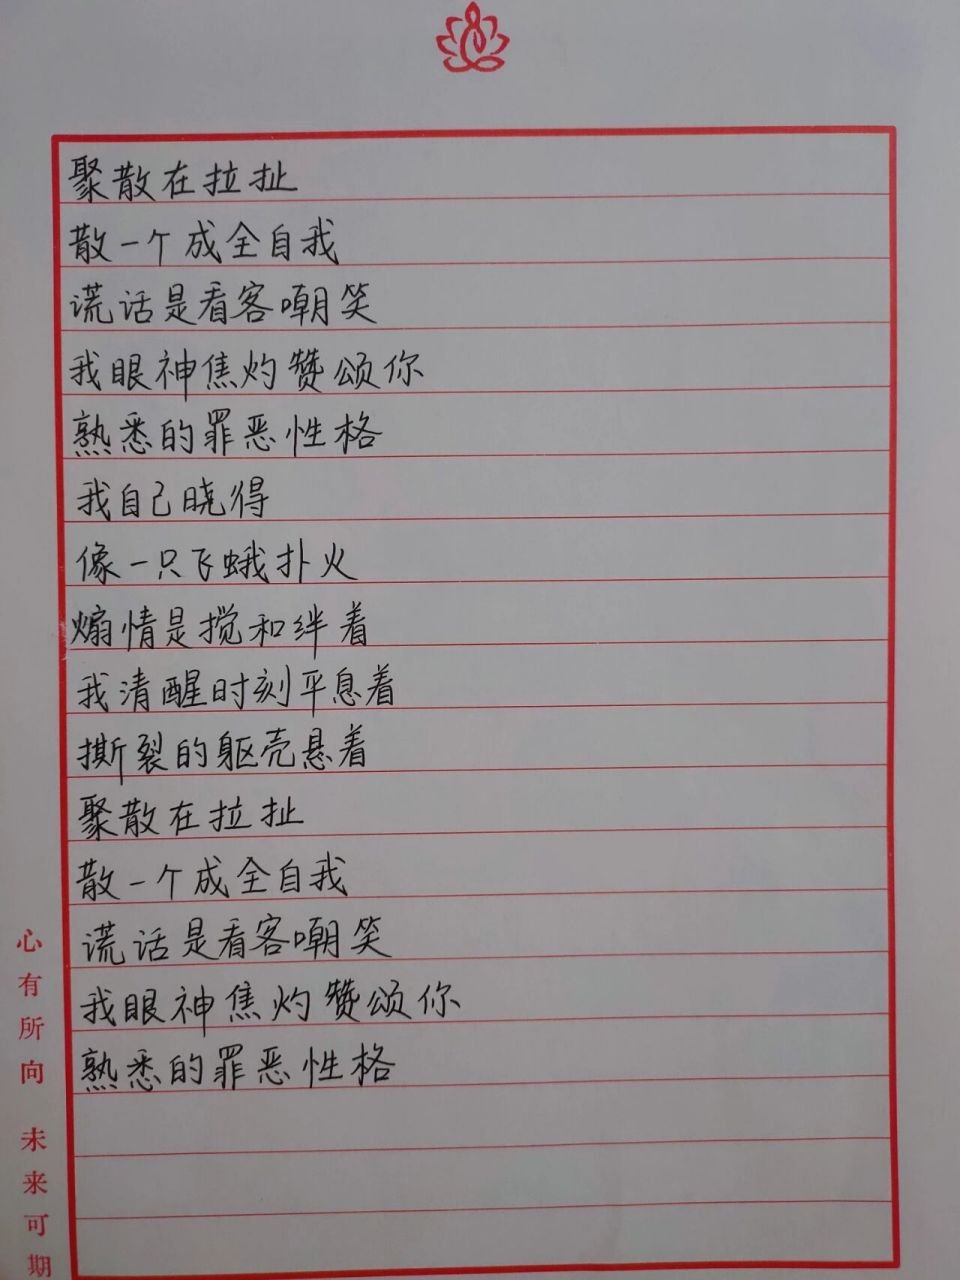 聚散在拉扯
散一个成全自我
谎话是看客嘲笑
我眼神焦灼赞颂你
熟悉的罪恶性格
我自己晓得
像一只飞蛾扑火
煽情是搅和绊着
我清醒时刻平息着
撕裂的躯壳悬着
聚散在拉扯
散一个成全自我
谎话是看客嘲笑
我眼神焦灼赞颂你
熟悉的罪恶性格
心有所向 未来可期